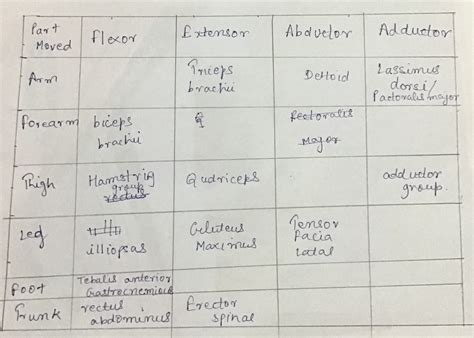 Part Moved | Flexor | Extensor | Abductor | Adductor
Arm | | Triceps brachii | Deltoid | Lassimus dorsi/ Pactoralis major
Forearm | biceps brachii | | Rectoralis Major |
Thigh | Hamstring group rectus | Qudriceps | | adductor group.
Leg | illiopsas | Geluteus Maximus | Tensor Facia |
Foot | Tebalis anterior Gastrocnemious | | |
Trunk | rectus abdominus | Erector spinal | |